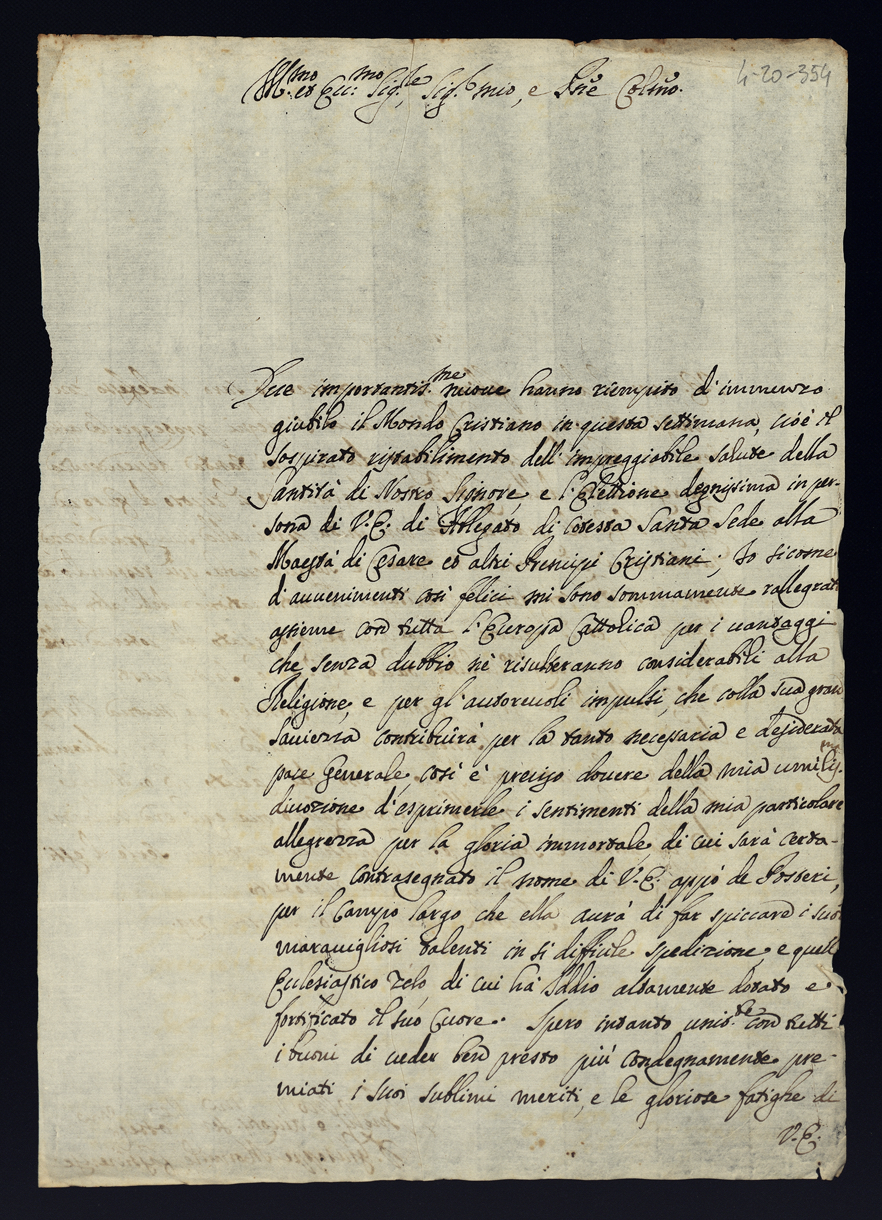 4-20-354
Ill.mo et Ecc.mo Sig.re, Sig.r mio, e Pñe Colmo.
Due importantis.me nuove hanno riempito d'immenzo
giubilo il Mondo Cristiano in questa settimana, cioè il
sospirato ristabilimento dell'impreggiabile salute della
Santità di Nostro Signore, e l'Elettione degnissima in per-
sona di V.E. di Ablegato di cotesta Santa Sede alla
Maestà di Cesare et altri Prencipi Cristiani; Io sicome
d'avvenimenti così felici mi sono sommamente rallegrat
assieme con tutta l'Europa Cattolica per i vantaggi
che senza dubbio nè risulteranno considerabili alla
Religione, e per gl'autorevoli impulsi, che colla sua gran
Saviezza contribuirà per la tanto necessaria e desiderata
pace Generale, così è preciso dovere della mia umilis.ma
divozione d'esprimerle i sentimenti della mia particolare
allegrezza per la gloria immortale, di cui sarà certa-
mente contrasegnato il nome di V.E. appò de Posteri,
per il Campo largo, che ella avrà di far spiccare i suoi
maravigliosi talenti in sì difficile spedizione, e quell
Ecclesiastico Zelo, di cui hà Iddio altamente dotato e
fortificato il suo Cuore. Spero intanto unit.te con tutti
i buoni di veder ben presto più condegnamente pre-
miati i suoi sublimi meriti, e le gloriose fatighe di
V.E.